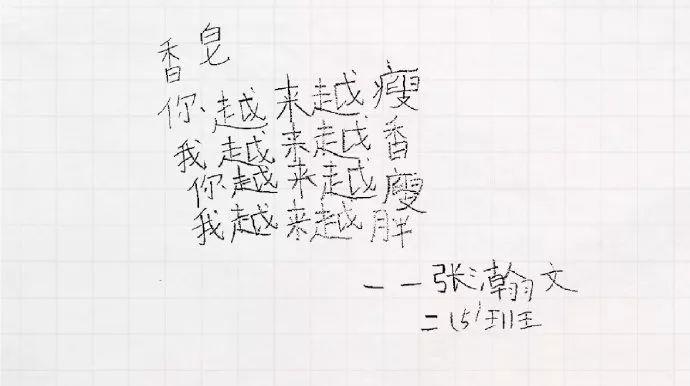 香皂
你越来越瘦
我越来越香
你越来越瘦
我越来越胖
——张瀚文
二(5)班